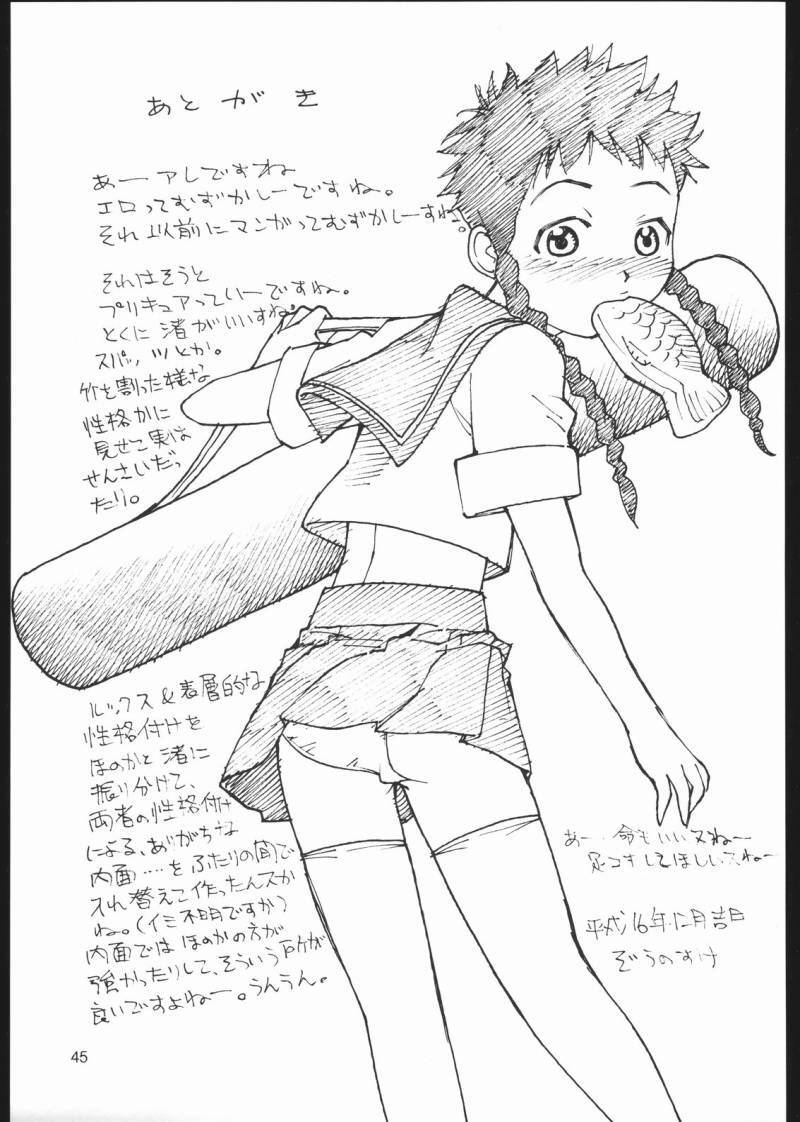 あとがき
あーアレですね
エロってむずかしーですね。
それ以前にマンガってむずかしーすね。
それはそうと
プリキュアっていーですね。
とくに渚がいいすね。
スパッツとか。
竹を割った様な
性格かに
見せて実は
せんさいだっ
たり。
ルックス&表層的な
性格付けを
ほのかと渚に
振り分けて、
両者の性格付け
による、ありがちな
内面‥‥をふたりの間で
入れ替えて作ったんスか
ね。(イミ不明ですか)
内面ではほのかの方が
強かったりして、そういうトコが
良いですよねー。うんうん。
あー 命もいいスねー
足コキしてほしいスねー
平成16年12月吉日
ぞうのすけ
45